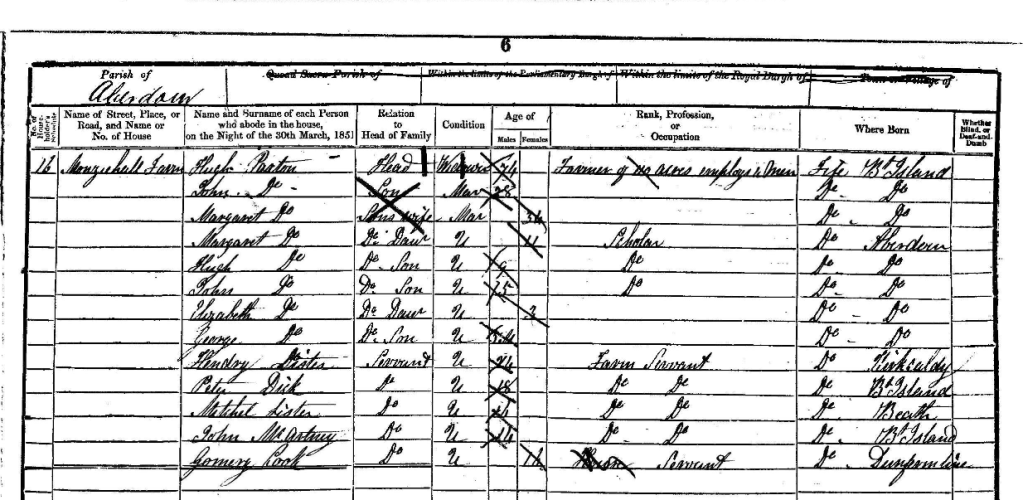 6
Parish of Aberdour Quoad Sacra Parish of Within the limits of the Parliamentary Burgh of Within the limits of the Royal Burgh of Town or Village of
No. of House-holder's Schedule Name of Street, Place, or Road, and Name or No. of House Name and Surname of each Person who abode in the house, on the Night of the 30th March, 1851 Relation to Head of Family Condition Age of Males Females Rank, Profession, or Occupation Where Born Whether Blind, or Deaf-and-Dumb
Farm Hugh Paxton Head Farmer of acres employs Men Fife Bt Island
John Do Son Mar Do Do
Margaret Do Sons wife Mar 34 Do Do
Margaret Do Do Daur U 11 Scholar Do Aberdour
Hugh Do Do Son U 9 Do Do Do
John Do Do Son U 5 Do Do Do
Elizabeth Do Do Daur U 3 Do Do
George Do Do Son U Do Do
Hendry Lister Servant U 24 Farm Servant Do Kirkcaldy
Peter Dick Do U 18 Do Do Do Bt Island
Mitchel Lister Do U Do Do Do Beath
John McArtney Do U 14 Do Do Do Bt Island
Cook Do U House Servant Do Dunfermline